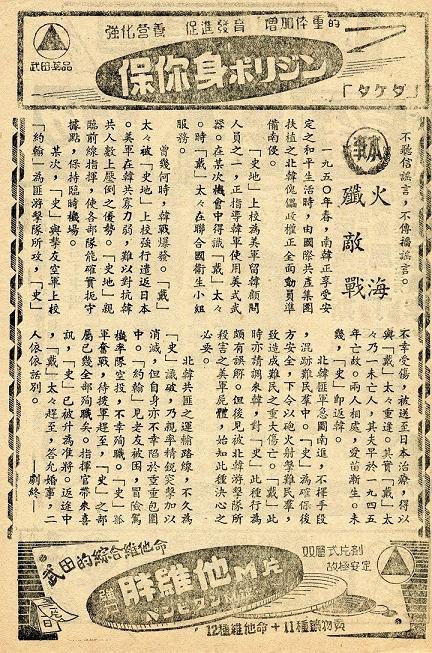 強化營養 促進發育 增加体重的
武田藥品
保你身ポリシン
「タケダ」
不聽信謠言,不傳播謠言。
本事
火海
殲敵戰
一九五○年春,南韓正享受安
定之和平生活時,由國際共產集團
扶植之北韓傀儡政權正全面動員準
備南侵。
「史地」上校為美軍留韓顧問
人員之一,正指導韓軍使用美式武
器。在某次機會中得識「戴」太々
。時「戴」太々在聯合國衛生小組
服務。
曾幾何時,韓戰爆發。「戴」
太々被「史地」上校強行遣返日本
。美軍在韓共寡力弱,難以對抗韓
共人數上壓倒之優勢。「史地」親
臨前線指揮,使各部隊能確實扼守
據點,保持臨時機場。
某次,「史」與摯友空軍上校
「約翰」為匪游擊隊所攻,「史」
不幸受傷,被送至日本治療,得以
與「戴」太々重逢。其實「戴」太
々乃一未亡人,其夫早於一九四五
年亡故。兩人相處,愛苗漸生。未
幾,「史」即返韓。
北韓匪軍急圖南進,不擇手段
,混跡難民羣中。「史」為確保後
方安全,下令以砲火射擊難民羣,
致造成難民之重大傷亡。「戴」此
時亦請調來韓,對「史」此種行為
頗有誤解。但後見被北韓游擊隊所
殺害之美軍屍體,始知此種決心之
必要。
北韓共匪之運輸路線,不久為
「史」識破,乃親率精銳突擊加以
消滅,但自身亦不幸陷於重重包圍
中。「約翰」見老友被困,冒險駕
機率隊空投,不幸殉職。「史」孤
軍奮戰,待援軍趕至,「史」之部
屬已幾全部殉職矣。指揮官帶來喜
訊,「史」已被升為准將。返途中
,「戴」太々趕至,答允婚事,二
人依依話別。 —劇終—
武田的綜合維他命
双層式片剂
故極安定
胖維他M片
パンビタンM
12種維他命+11種鑛物質